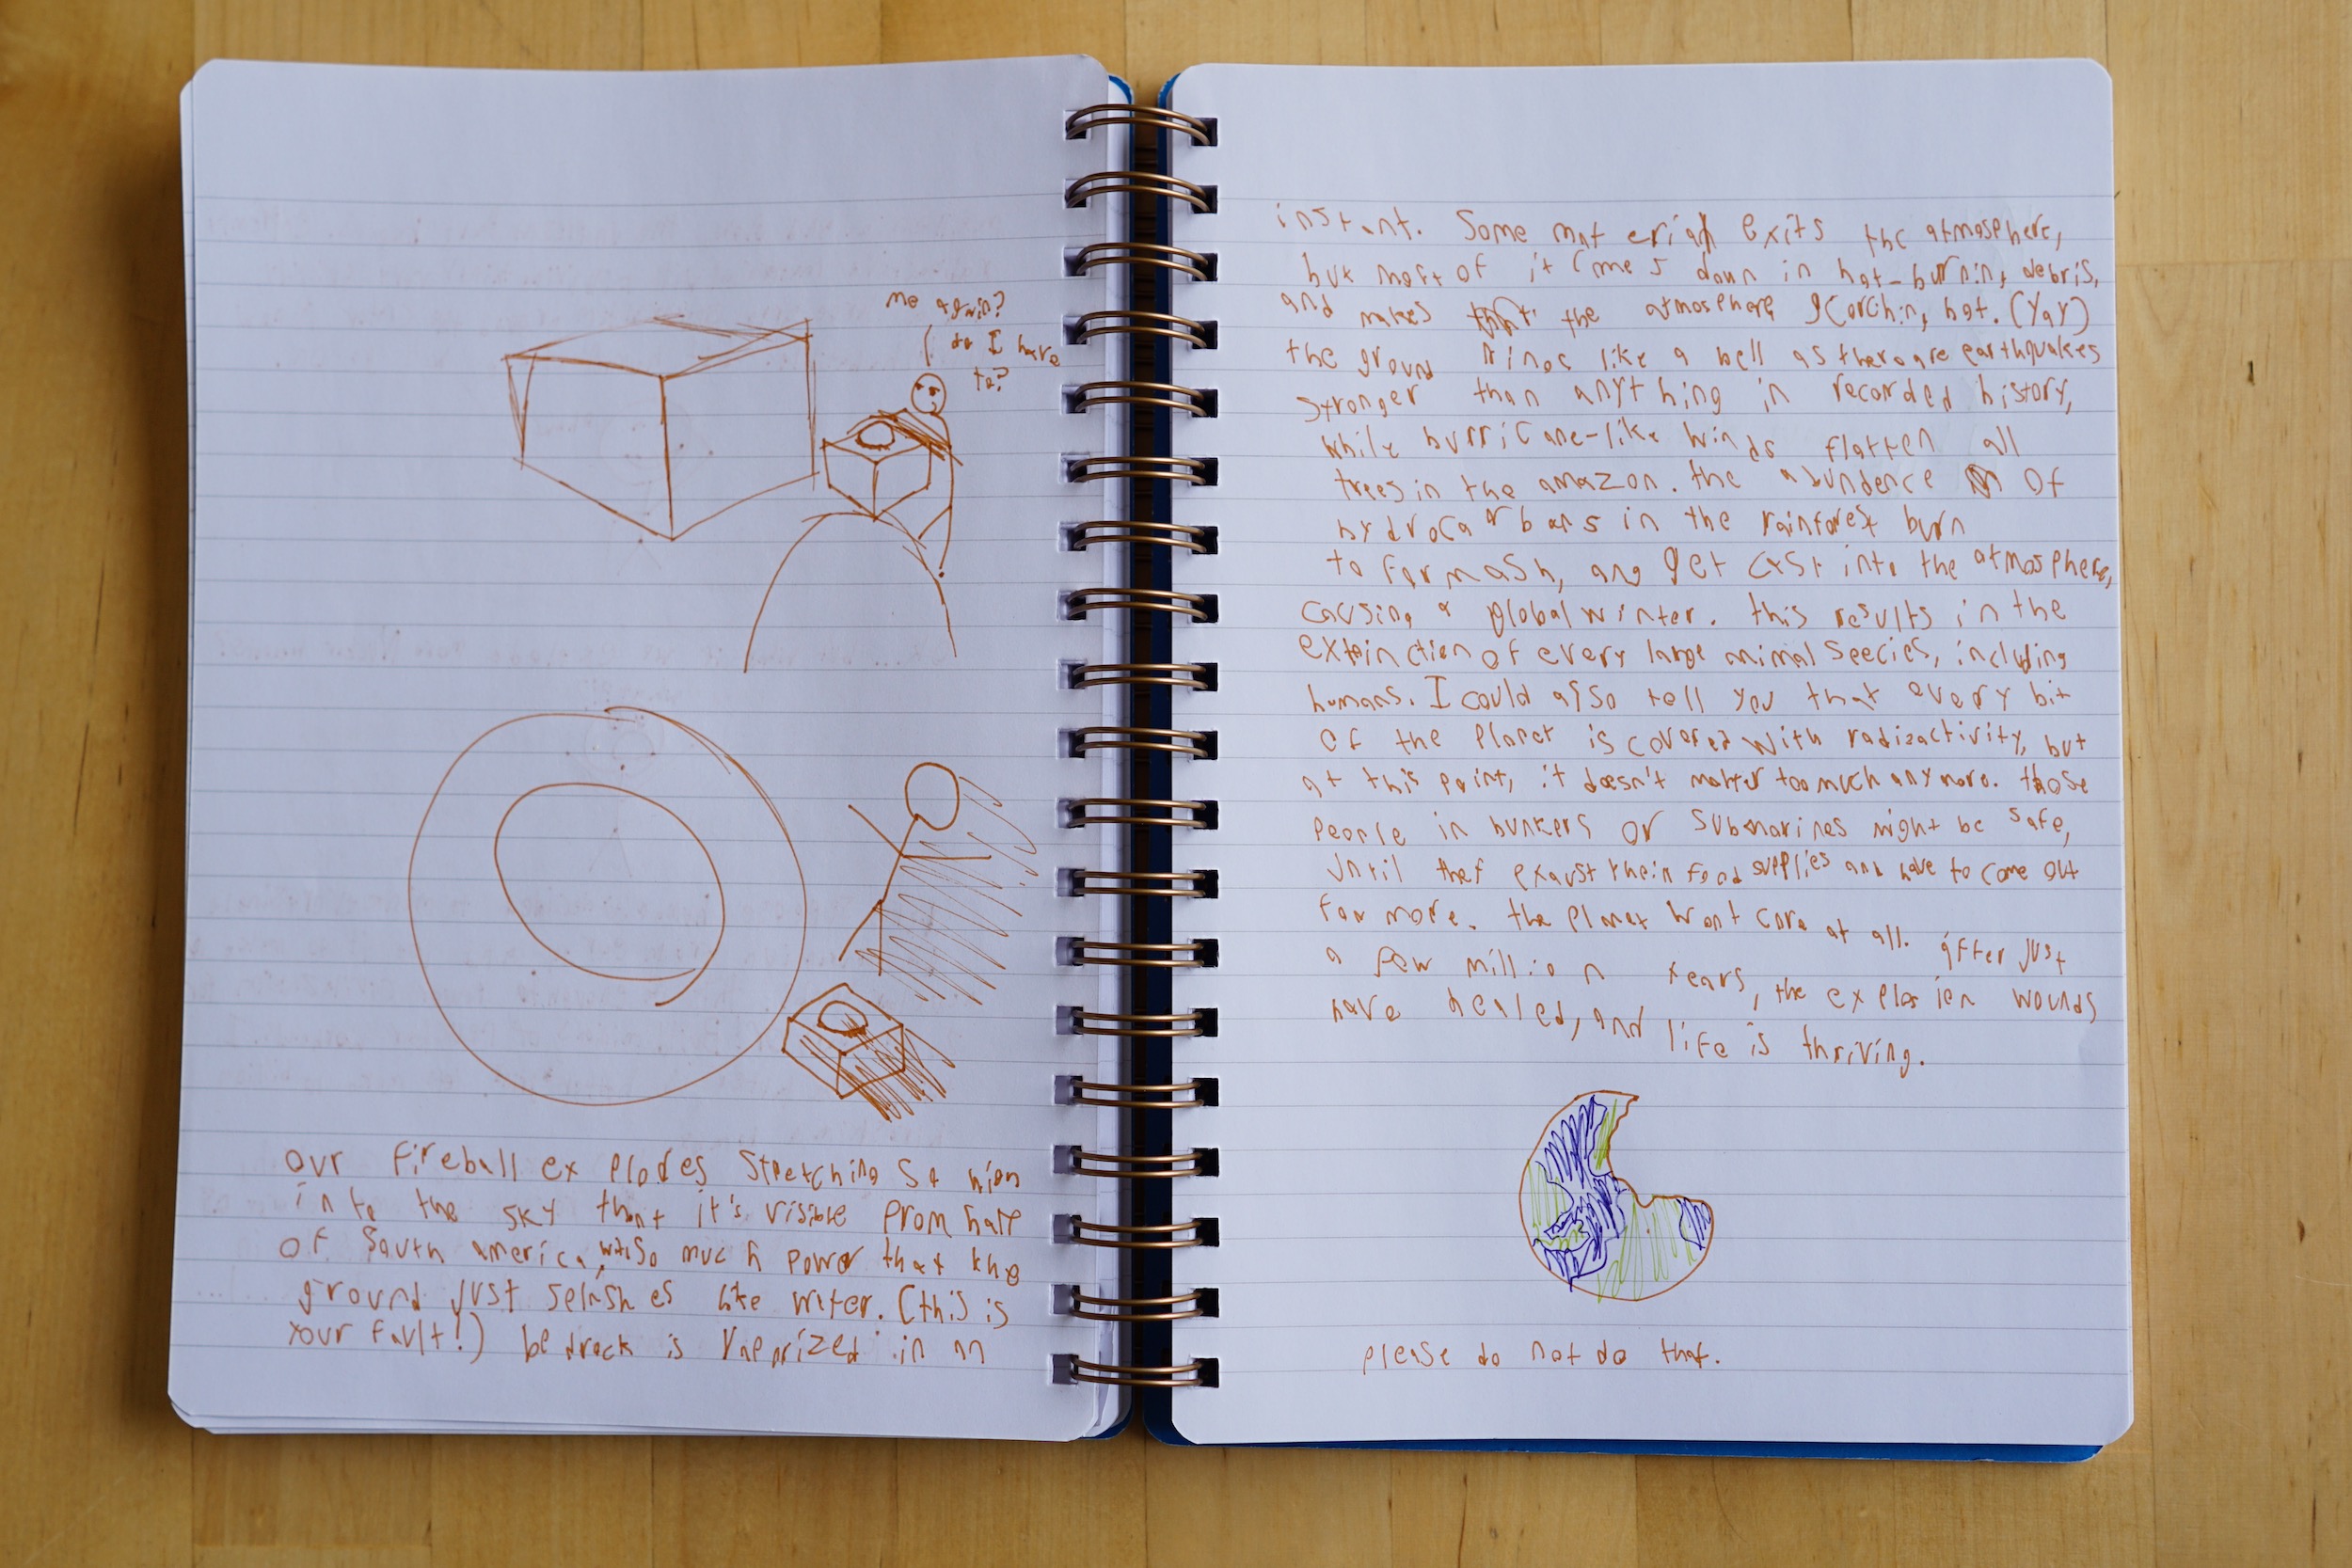 me again?
do I have
to?
our fireball explodes stretching so high
into the sky that it's visible from half
of South america, with so much power that the
ground just splashes like water. (this is
your fault!) bedrock is vaporized in an
instant. Some material exits the atmosphere,
but most of it comes down in hot-burning debris,
and makes the atmosphere scorching hot. (Yay)
the ground rings like a bell as there are earthquakes
stronger than anything in recorded history,
while hurricane-like winds flatten all
trees in the amazon. the abundence of
hydrocarbons in the rainforest burn
to form ash, and get cast into the atmosphere,
causing a global winter. this results in the
extinction of every large animal species, including
humans. I could also tell you that every bit
of the planet is covered with radioactivity, but
at this point, it doesn't matter too much anymore. those
people in bunkers or submarines might be safe,
until they exaust their food supplies and have to come out
for more. the planet wont care at all. after just
a few million years, the explosion wounds
have healed, and life is thriving.
please do not do that.